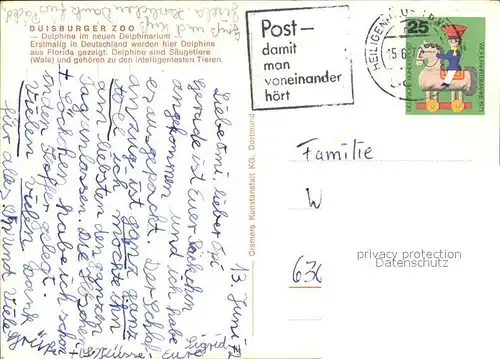 DUISBURGER ZOO
— Delphine im neuen Delphinarium —
Erstmalig in Deutschland werden hier Delphine
aus Florida gezeigt. Delphine sind Säugetiere
(Wale) und gehören zu den intelligentesten Tieren.
Post—
damit
man
voneinander
hört
15.6.
25
DEUTSCHE BUNDESPOST
13. Juni 71
Liebe Omi, lieber Opi
gerade ist Euer Päckchen
angekommen und ich habe
es ausgepackt. Der Schlaf-
anzug ist ganz ganz
toll, ich möchte ihn
am liebsten den ganzen
Tag anlassen. Die Hosen
+ Söckchen habe ich schon
in den Koffer gelegt.
Vielen vielen Dank
für alles! und viele
Grüße + Küsse Eure
Sigrid
Cramers Kunstanstalt KG, Dortmund
Familie
W
636
privacy protection
watermark